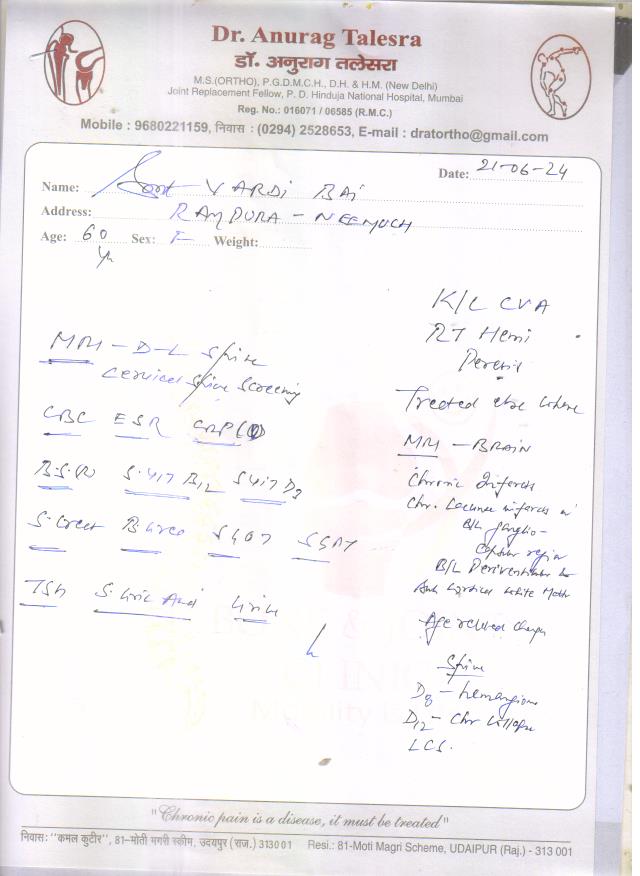 Dr. Anurag Talesra
डॉ. अनुराग तलेसरा
M.S.(ORTHO), P.G.D.M.C.H., D.H. & H.M. (New Delhi)
Joint Replacement Fellow, P. D. Hinduja National Hospital, Mumbai
Reg. No.: 016071 / 06585 (R.M.C.)
Mobile : 9680221159, निवास : (0294) 2528653, E-mail : dratortho@gmail.com
Date: 21-06-24
Name: VARDI BAI
Address: RAMPURA - NEEMUCH
Age: 60 Yr Sex: F Weight:
MRI - D-L Spine
Cervical Spine Screening
CBC ESR CRP (Q)
B.S.(R) S.Vit B12 S Vit D3
S.Creat B.Urea SGOT SGPT
TSH S.Uric Acid Urine
K/C CVA
RT Hemi
Paresis
Treated else where
MRI - BRAIN
Chronic Infarcts
Chr. Lacunar infarcts in
B/L ganglio-
capsular region
B/L Periventricular &
cortical white Matter
Age related changes
Spine
D8 - hemangioma
D12 - Chr collapse
LCS.
"Chronic pain is a disease, it must be treated"
निवासः "कमल कुटीर", 81-मोती मगरी स्कीम, उदयपुर (राज.) 313001 Resi.: 81-Moti Magri Scheme, UDAIPUR (Raj.) - 313 001